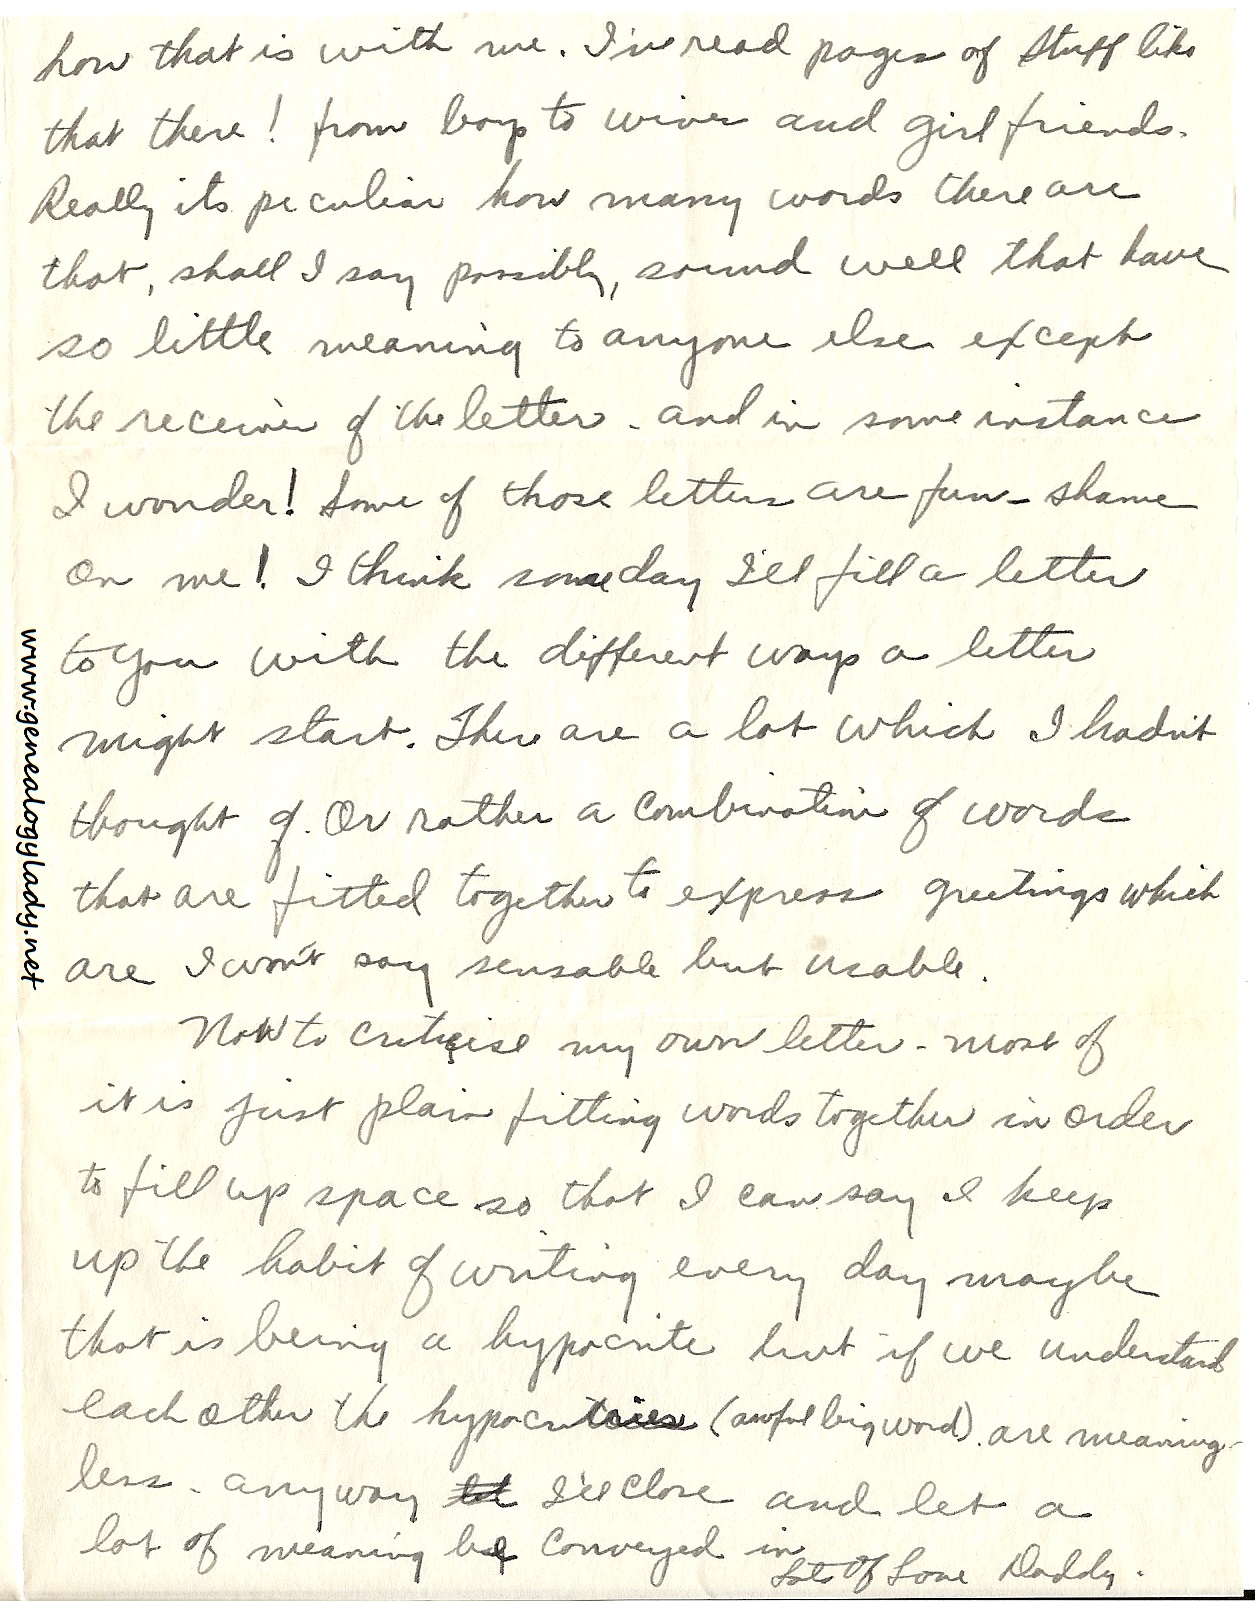 how that is with me. I've read pages of stuff like
that there! from boys to wives and girl friends.
Really its peculiar how many words there are
that, shall I say possibly, sound well that have
so little meaning to anyone else except
the receiver of the letter. and in some instance
I wonder! Some of those letters are fun - shame
on me! I think someday I'll fill a letter
to you with the different ways a letter
might start. There are a lot which I hadn't
thought of. Or rather a combination of words
that are fitted together to express greetings which
are I won't say sensable but usable.
Now to criticise my own letter - most of
it is just plain fitting words together in order
to fill up space so that I can say I keep
up the habit of writing every day maybe
that is being a hypocrite but if we understand
each other the (awful big word) are meaning-
less. anyway I'll close and let a
lot of meaning be conveyed in
Lots of Love Daddy.
www.genealogylady.net